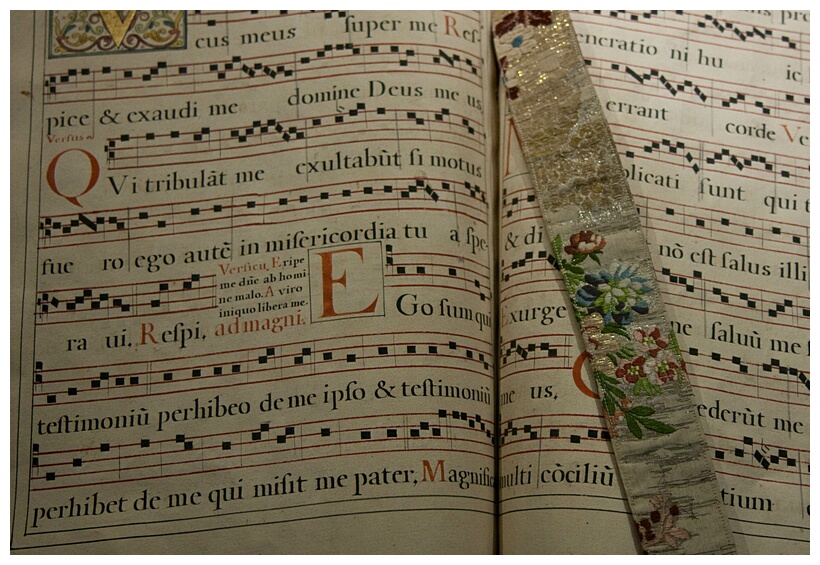 V
cus meus ſuper me Reſ.
pice & exaudi me domine Deus me us
Verſus
QVi tribulāt me exultabūt ſi motus
fue ro ego autē in miſericordia tu a ſpe-
Verſicu. Eripe
me dñe ab homi
ne malo. A viro
iniquo libera me.
ra ui. Reſpi, ad magni.
EGo ſum qui
teſtimoniū perhibeo de me ipſo & teſtimoniū
perhibet de me qui miſit me pater, Magnifi
encratio ni hu ic
errant corde Ve
plicati ſunt qui t
& di nō eſt ſalus illi
Exurge ne ſaluū me f
me us, ederūt me
multi cōciliū tium